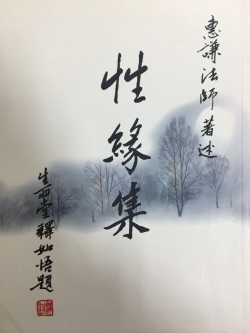 惠謙法師著述
性緣集
釋如悟題